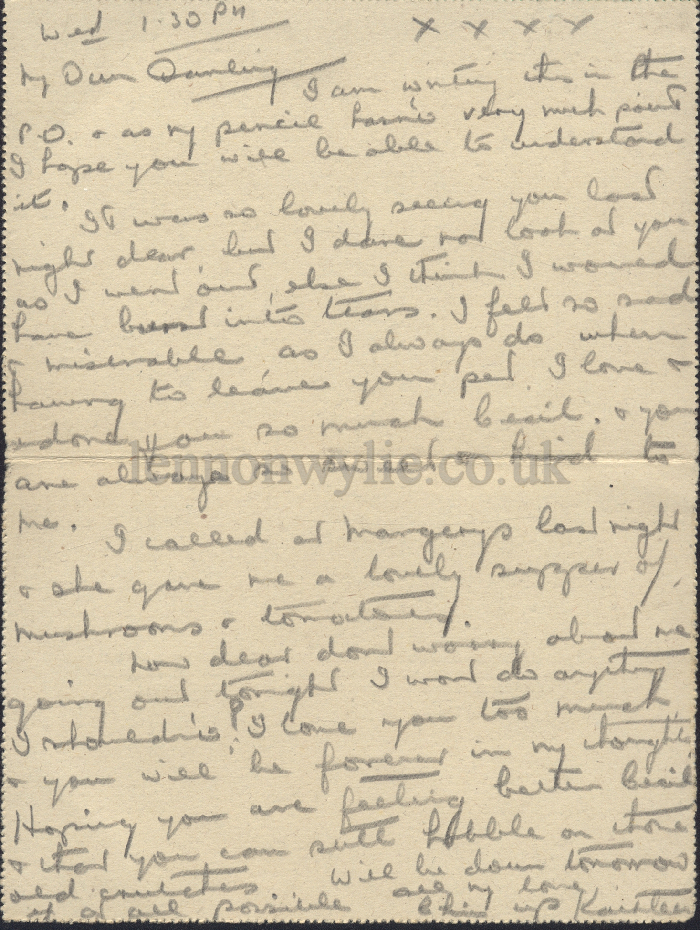 Wed 1.30 PM
x x x x
My Own Darling
I am writing this in the
P.O. & as my pencil hasn't very much point
I hope you will be able to understand
it.
It was so lovely seeing you last
night dear, but I dare not look at you
as I went out, else I think I would
have burst into tears. I felt so sad
& miserable as I always do when
having to leave you pet. I love &
adore you so much Cecil, & you
are always so sweet & kind to
me.
lennonwylie.co.uk
I called at Margerys last night
& she gave me a lovely supper of
mushrooms & tomatoes.
Now dear dont worry about me
going out tonight I wont do anything
I shouldn't. I love you too much
& you will be forever in my thoughts
Hoping you are feeling better Cecil
& that you can still hobble on those
old crutches. Will be down tomorrow
if at all possible
all my love
Chin up Kathleen